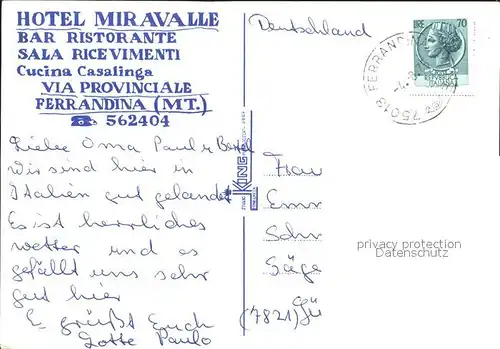 HOTEL MIRAVALLE
BAR RISTORANTE
SALA RICEVIMENTI
Cucina Casalinga
VIA PROVINCIALE
FERRANDINA (MT.)
☎ 562404
Deutschland
LIRE 70
75013 FERRANDINA
Liebe Oma Paul u Bertel
Wir sind hier in
Italien gut gelandet
Es ist herrliches
wetter und es
gefällt uns sehr
gut hier
Es grüßt Euch
Lotte Paulo
KING
Frau
Emm
Schn
Säge
(7821) Gü
privacy protection
Datenschutz